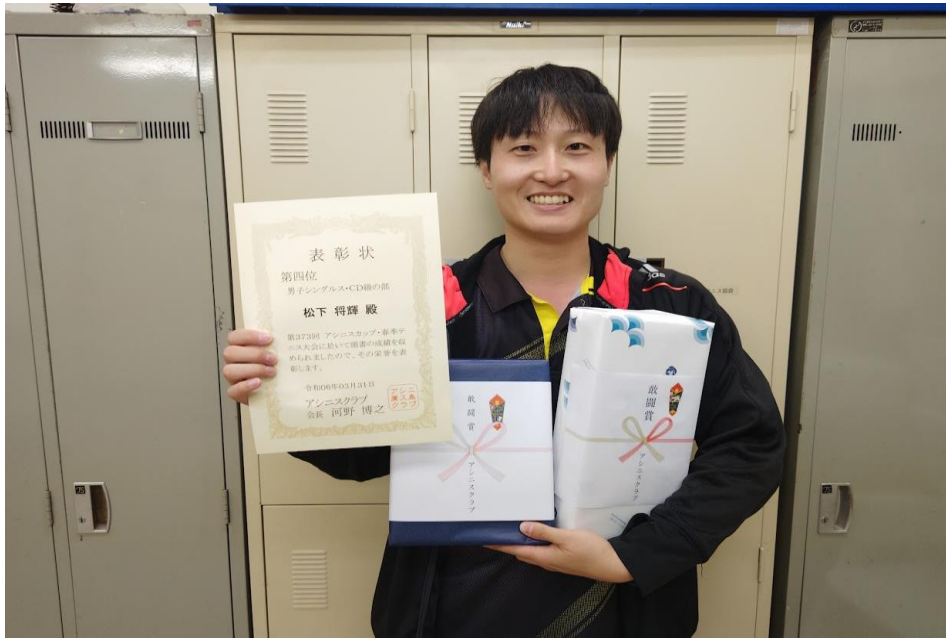 表彰状
第四位
男子シングルス・CD級の部
松下 将輝 殿
第373回 アシニスカップ・春季テ
ニス大会に於いて頭書の成績を収
められましたので、その栄誉を表
彰します。
令和06年03月31日
アシニスクラブ
会長 河野 博之
敢闘賞
アシニスクラブ
敢闘賞
アシニスクラブ
Naiki
adidas